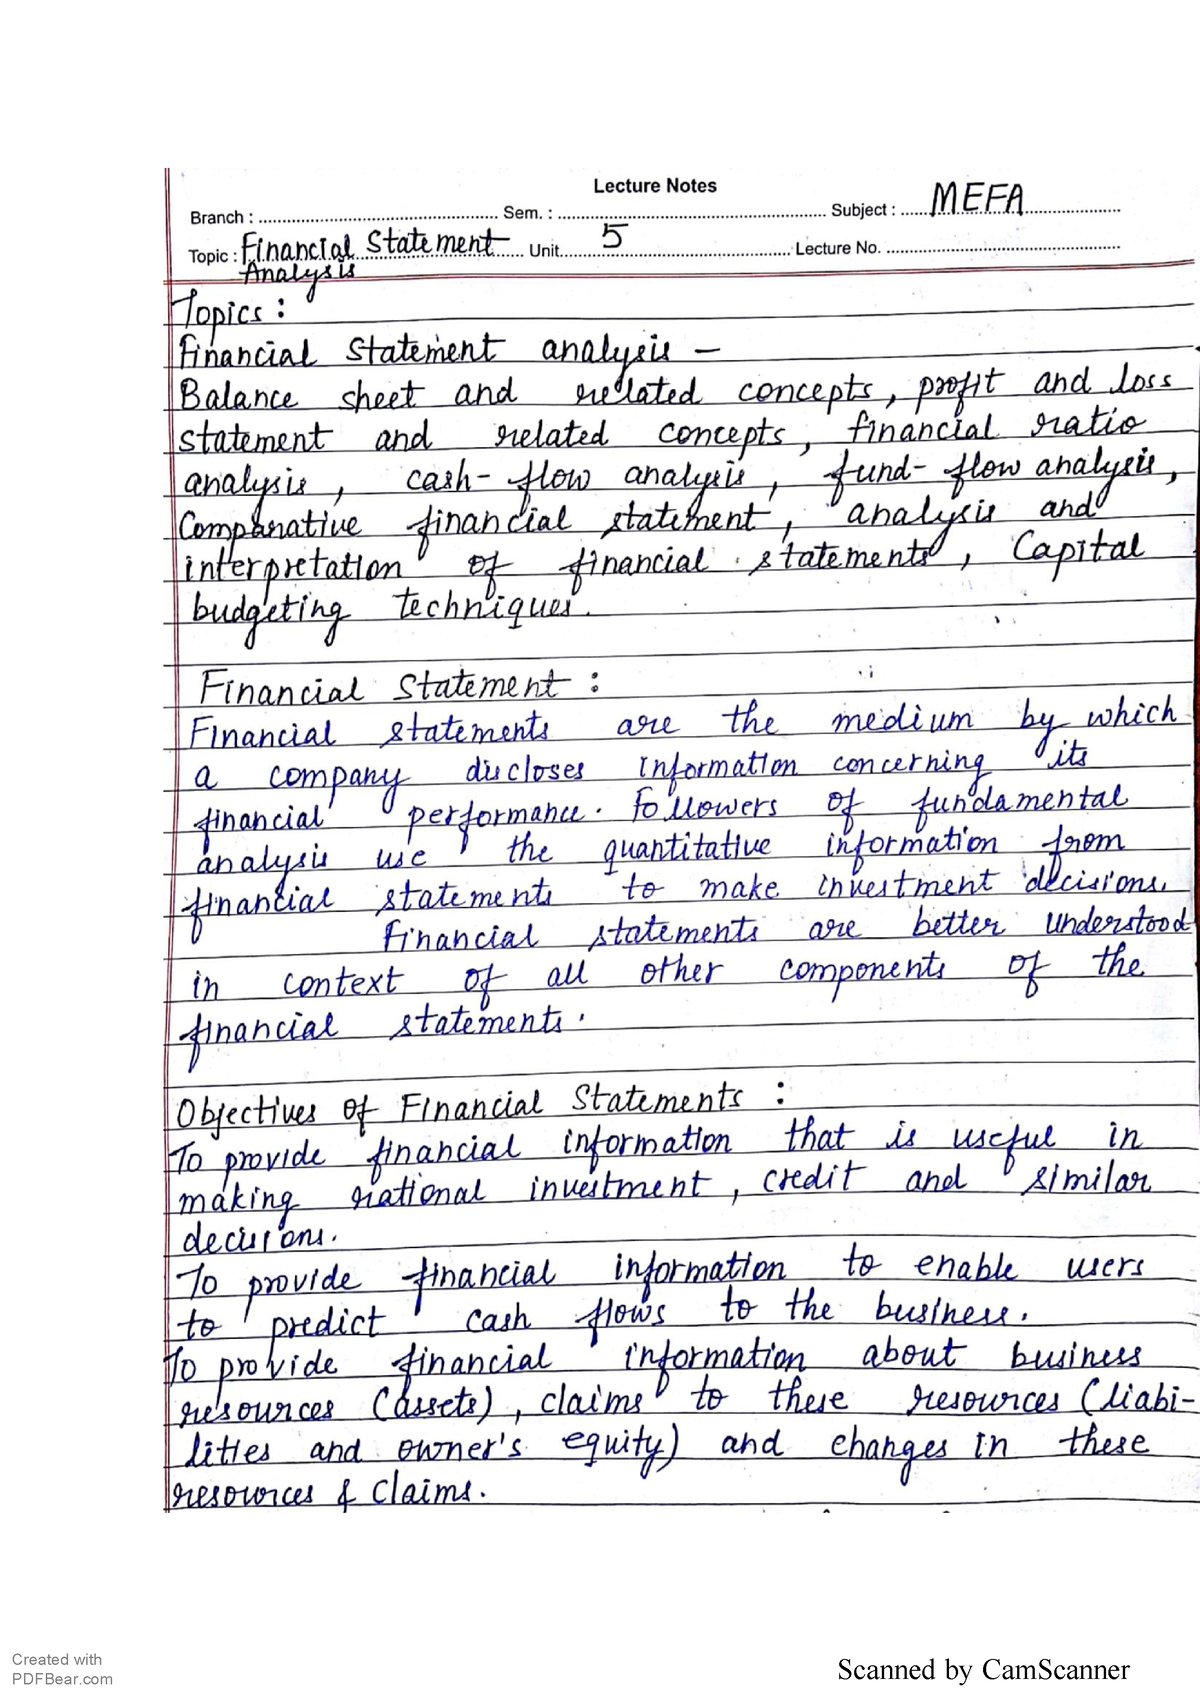 Lecture Notes
Branch : .................... Sem. : .................... Subject : ...... MEFA ....................
Topic : Financial Statement Unit 5 Lecture No. ....................
Analysis
Topics :
Financial Statement analysis –
Balance sheet and related concepts, profit and loss
statement and related concepts, financial ratio
analysis, cash-flow analysis, fund-flow analysis,
Comparative financial statement, analysis and
interpretation of financial statements, Capital
budgeting techniques.
Financial Statement :
Financial statements are the medium by which
a company discloses information concerning its
financial performance. Followers of fundamental
analysis use the quantitative information from
financial statements to make investment decisions.
Financial statements are better understood
in context of all other components of the
financial statements.
Objectives of Financial Statements :
To provide financial information that is useful in
making rational investment, credit and similar
decisions.
To provide financial information to enable users
to predict cash flows to the business.
To provide financial information about business
resources (assets), claims to these resources (liabi-
lities and owner's equity) and changes in these
resources & claims.
Created with
PDFBear.com
Scanned by CamScanner